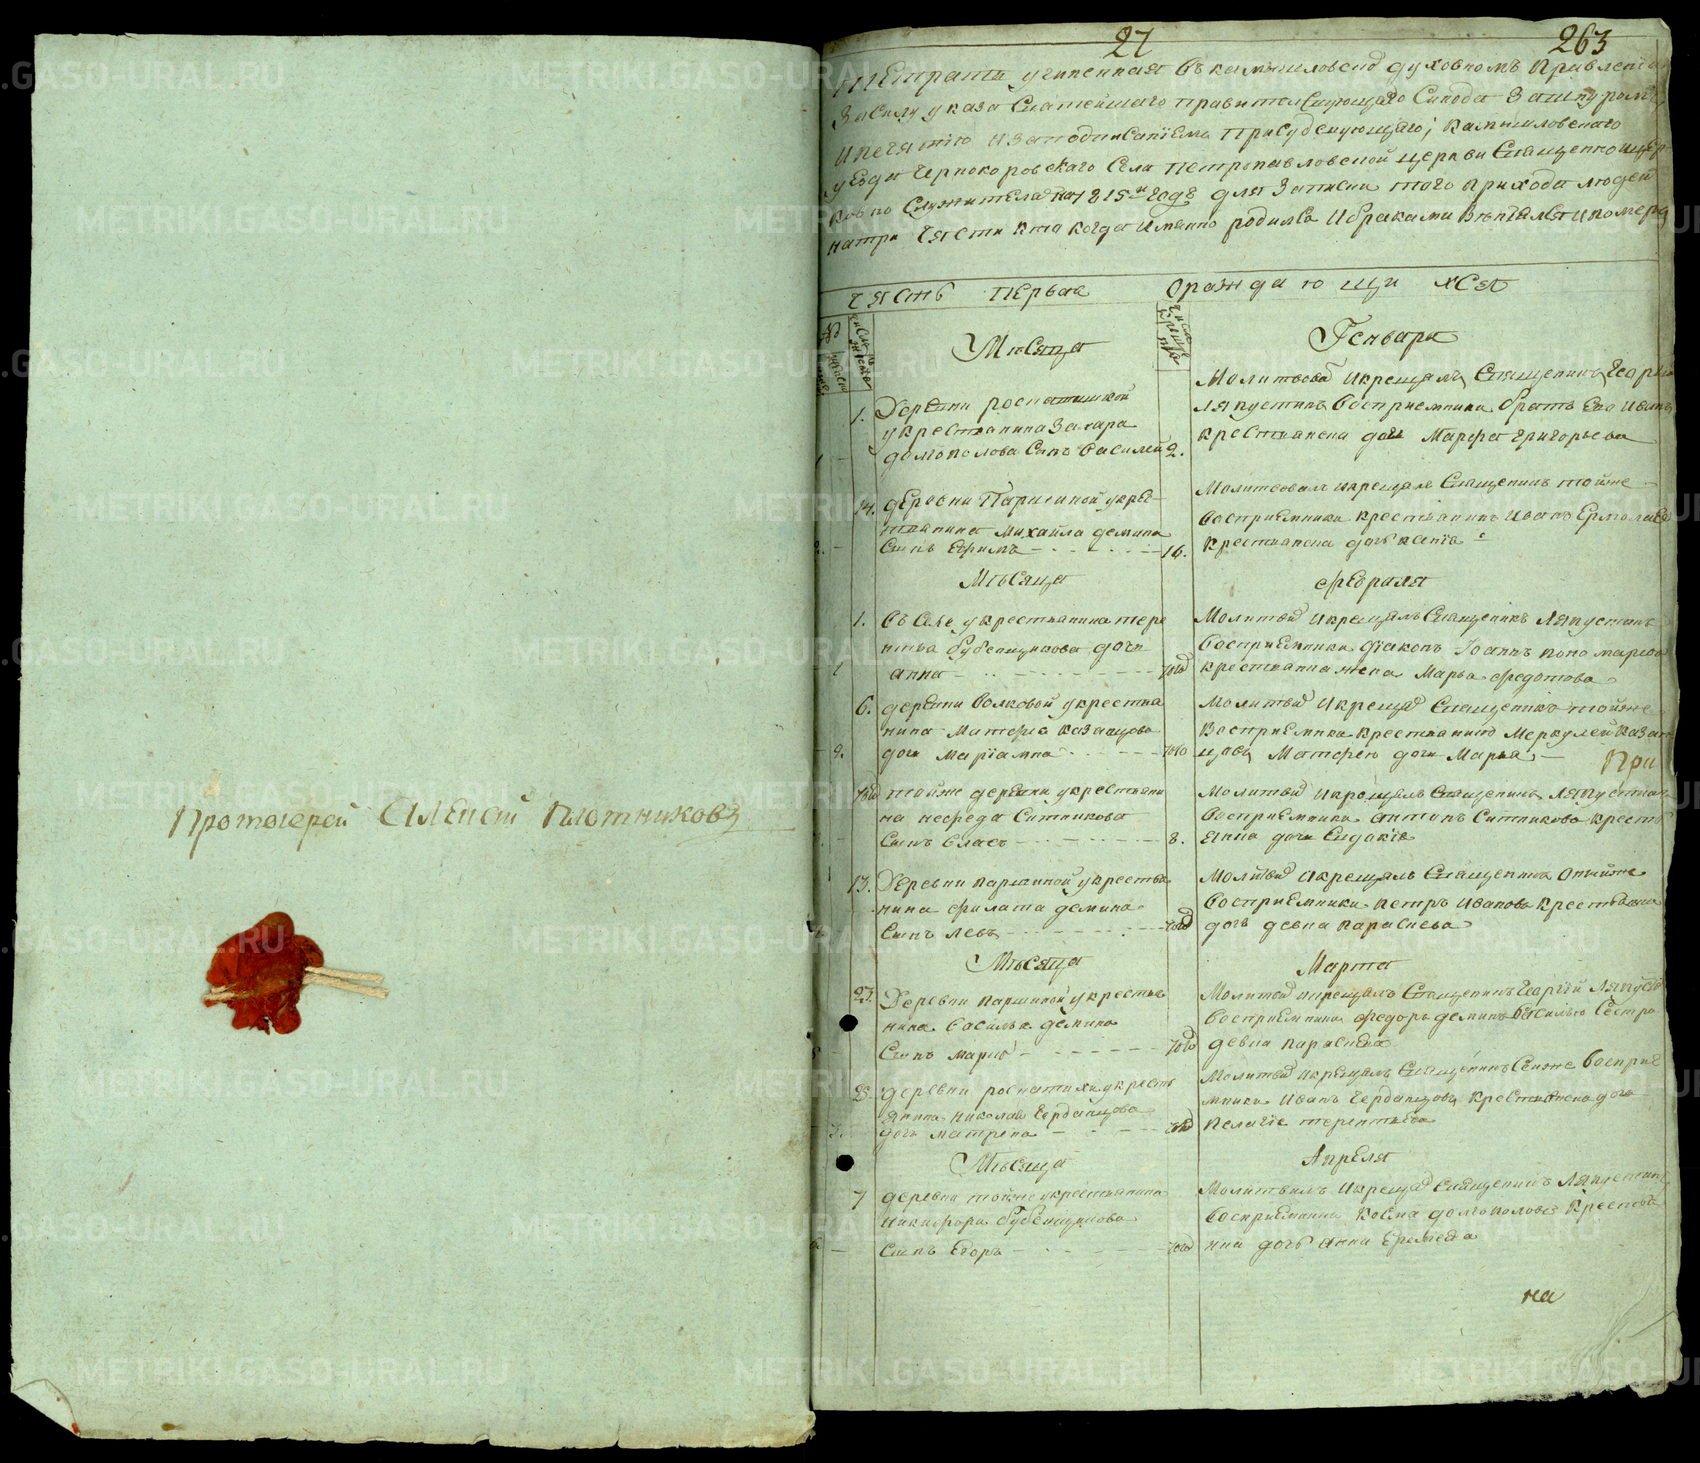 Протоіерей Алексей Плотниковъ
27
263
Тетрать учиненная въ камышловскомъ духовномъ правленіи
въ силу указа Святейшаго правительствующаго Синода за шнуромъ
и печятью и за подписаніемъ присудствующаго; камышловскаго
уезда Чернокоровскаго Села петропавловской церкви Священно и цер
ковно служителямъ на 1815й годъ для записки того прихода людей
на три части кто когда имянно родился и браками венчялся и померъ
чясть первая о раждающихся
Мѣсяца Генваря
1. Деревни роспатицкой
у крестьянина Захара
долгополова Сынъ Василей 2.
Молитвовалъ и крещалъ Священникъ Георгій
Ляпустинъ восприемники братъ Его Иванъ
крестьянска дочь Марфа григорьева
14. деревни Паршиной у крес
тьянина Михаила демина
Сынъ Ефимъ 16.
Молитвовалъ и крещалъ Священникъ тойже
восприемники крестьянинъ Иванъ Ермолаевъ
крестьянска дочь
Мѣсяца Февраля
1. въ Селе у крестьянина тере
нтья бубенщикова дочь
анна
Молитвовалъ и крещалъ Священникъ Ляпустинъ
восприемники діаконъ Іоаннъ пономаревъ
крестьянина жена Марья федотова
6. деревни волковой у крестья
нина Матфея казанцова
дочь Маріамна
Молитвовалъ и крещалъ Священникъ тойже
восприемники крестьянинъ Меркулей казан
цовъ Матфея дочь Марья
При
тойже деревни у крестьяни
на нефеда Ситникова
Сынъ Власъ 8.
Молитвовалъ и крещалъ Священникъ Ляпустинъ
восприемники антонъ Ситниковъ крестья
янина дочь
13. Деревни паршиной у крестья
нина филата демина
Сынъ Левъ
Молитвовалъ и крещалъ Священникъ
восприемники петръ Ивановъ крестьянска
дочь девка парасковья
Мѣсяца Марта
23. Деревни паршиной у крестья
нина василья демина
Сынъ марко
Молитвовалъ и крещалъ Священникъ Георгій Ляпустинъ
восприемники федоръ деминъ василью Сестра
девка парасковья
25. деревни роспатихи у кресть
янина николая бердапцова
дочь матрена
Молитвовалъ и крещалъ Священникъ восприе
мники Иванъ бердапцовъ крестьянска дочь
пелагія терентьева
Мѣсяца Апреля
7 деревни тойже у крестьянина
никифора бубенщикова
Сынъ Егоръ
Молитвовалъ и крещалъ Священникъ Ляпустинъ
восприемники косма долгополовъ крестья
нина дочь анна Еремеева
на